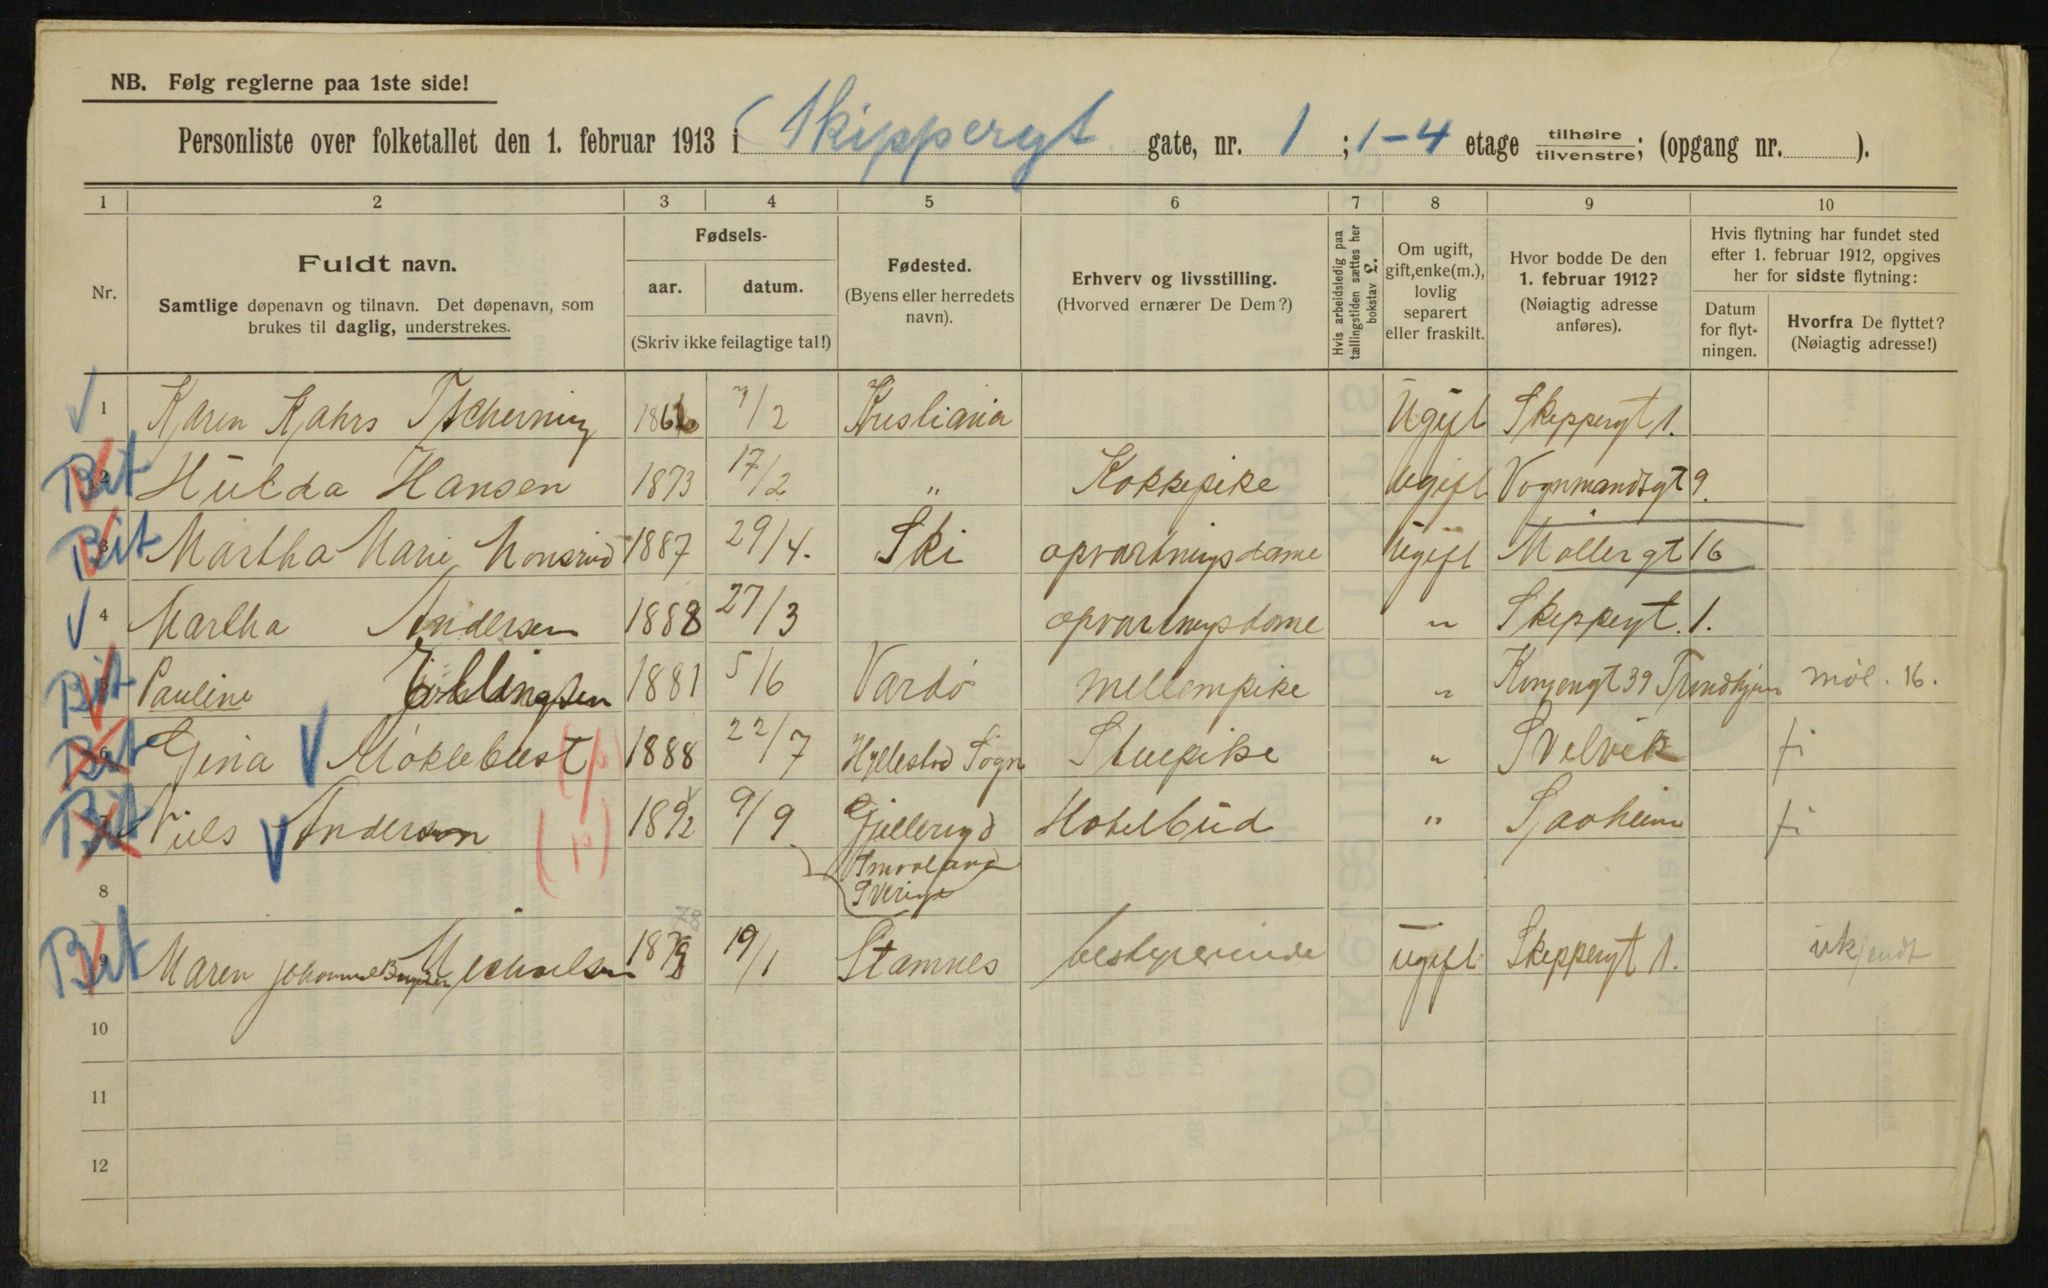 NB. Følg reglerne paa 1ste side!
Personliste over folketallet den 1. februar 1913 i Skippergt gate, nr. 1 ; 1-4 etage tilhøire/tilvenstre; (opgang nr. ).
1 2 3 4 5 6 7 8 9 10
Nr.
Fuldt navn.
Samtlige døpenavn og tilnavn. Det døpenavn, som
brukes til daglig, understrekes.
Fødsels-
aar. datum.
(Skriv ikke feilagtige tal!)
Fødested.
(Byens eller herredets
navn).
Erhverv og livsstilling.
(Hvorved ernærer De Dem?)
Hvis arbeidsledig paa
tællingstiden sættes her
bokstav L.
Om ugift,
gift, enke(m.),
lovlig
separert
eller fraskilt.
Hvor bodde De den
1. februar 1912?
(Nøiagtig adresse
anføres).
Hvis flytning har fundet sted
efter 1. februar 1912, opgives
her for sidste flytning:
Datum
for flyt-
ningen.
Hvorfra De flyttet?
(Nøiagtig adresse!)
1 Karen Kahrs Tscherning 7/2 Kristiania Ugift Skippergt 1.
Bit 2 Hulda Hansen 1873 17/2 " Kokkepike Ugift Vognmandsgt 9.
Bit 3 Martha Marie Monsrud 1887 29/4. Ski opvartningsdame Ugift Møllergt 16
4 Martha Andersen 1888 27/3 opvartningsdame " Skippergt. 1.
Bit 5 Pauline Ellingsen 1881 5/6 Vardø mellempike " Kongensgt 39 Trondhjem Møl. 16.
Bit 6 Gina Møklebust 1888 22/7 Hyllestad Sogn Stuepike " Svelvik fi
Bit 7 Niels Anderson 1892 9/9 Hotelbud " Sjaaheim fi
Smaaland
Sverige
8
Bit 9 Maren Johanne 19/1 Stamnes bestyrerinde Ugift Skippergt 1. ukjendt
10
11
12